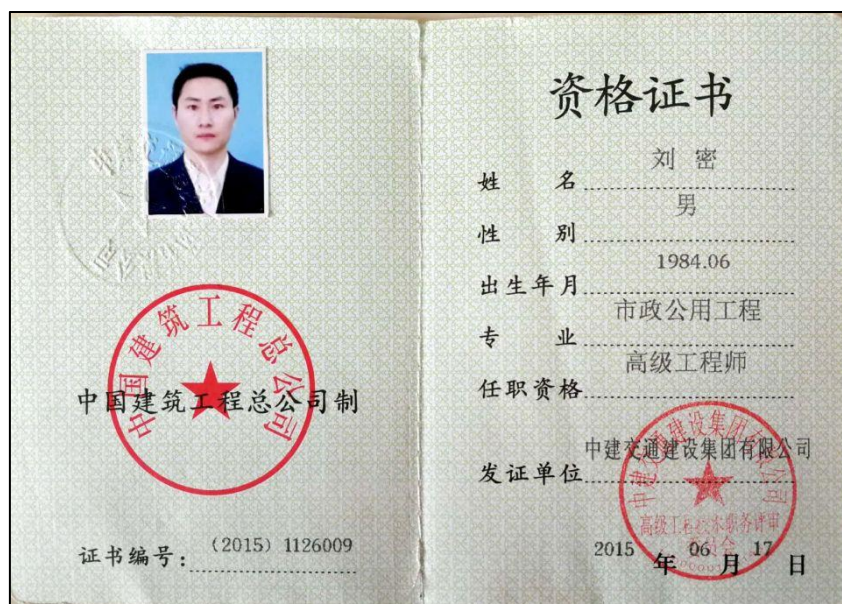 中国建筑工程总公司
中国建筑工程总公司制
证书编号：（2015）1126009
资格证书
姓名 刘密
性别 男
出生年月 1984.06
专业 市政公用工程
任职资格 高级工程师
发证单位 中建交通建设集团有限公司
中建交通建设集团有限公司
高级工程技术职务评审
委员会
2015年06月17日